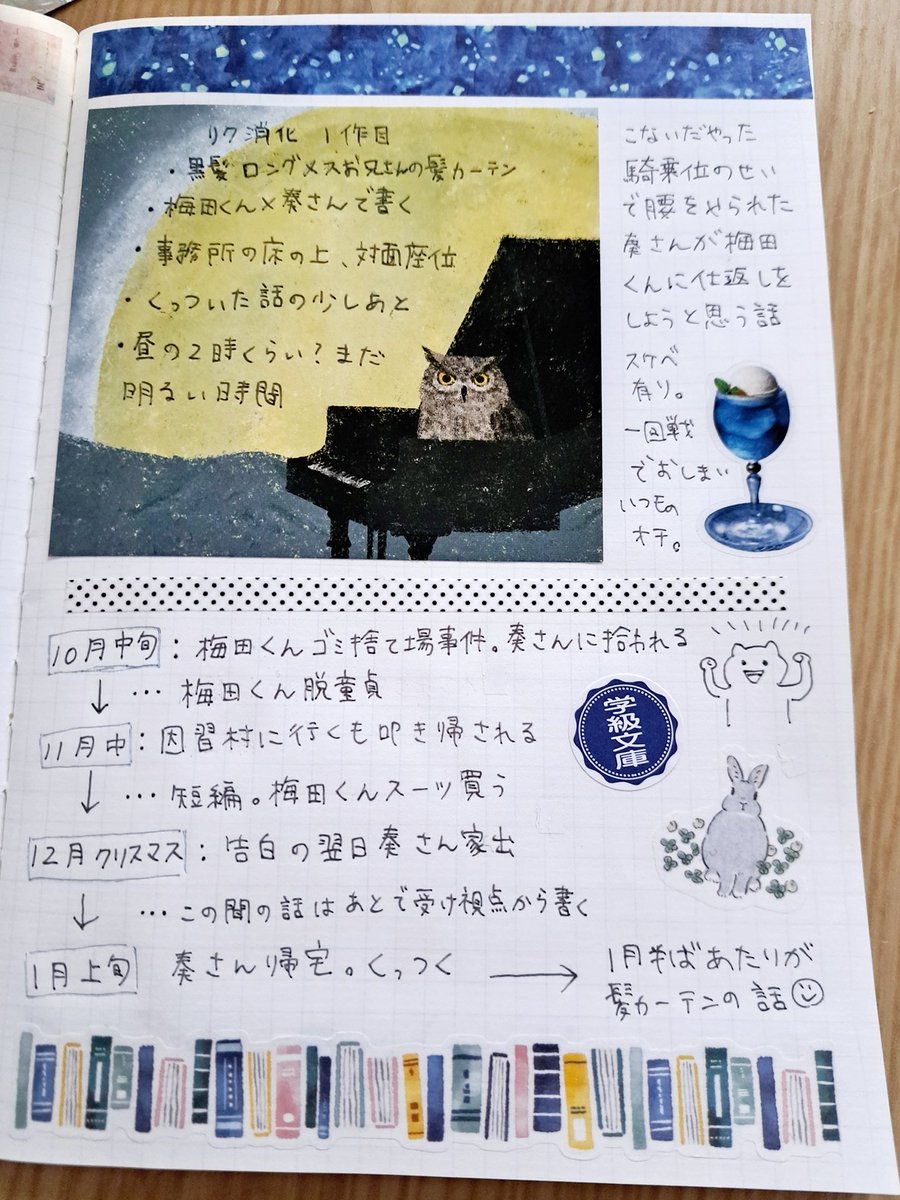 リク消化 1作目
・黒髪ロングメスお兄さんの髪カーテン
・梅田くん×奏さんで書く
・事務所の床の上、対面座位
・くっついた話の少しあと
・昼の2時くらい?まだ
明るい時間
こないだやった
騎乗位のせい
で腰をやられた
奏さんが梅田
くんに仕返しを
しようと思う話
スケベ
有り。
一回戦
でおしまい
いつもの
オチ。
10月中旬:梅田くんゴミ捨て場事件。奏さんに拾われる
↓ … 梅田くん脱童貞
11月中:因習村に行くも叩き帰される
↓ … 短編。梅田くんスーツ買う
学級文庫
12月クリスマス:告白の翌日奏さん家出
↓ …この間の話はあとで受け視点から書く
1月上旬 奏さん帰宅。くっつく → 1月半ばあたりが
髪カーテンの話